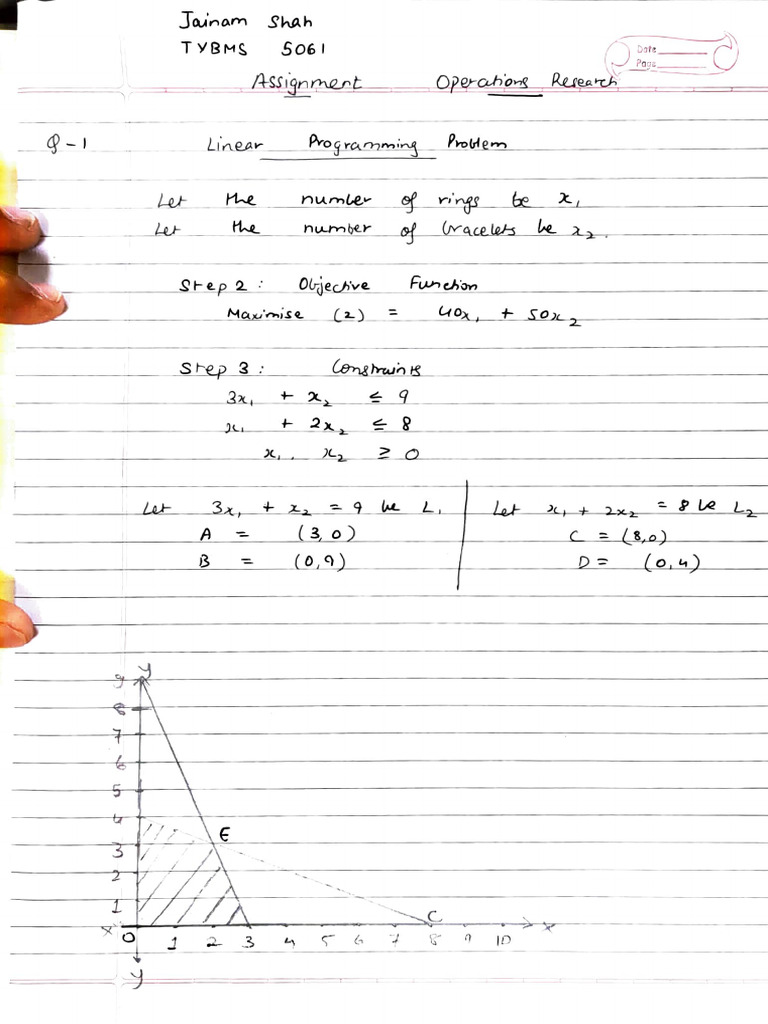 Jainam Shah
TYBMS 5061
Date
Page
Assignment Operations Research
Q-1 Linear Programming Problem
Let the number of rings be x₁
Let the number of bracelets be x₂.
Step 2: Objective Function
Maximise (2) = 40x₁ + 50x₂
Step 3: Constraints
3x₁ + x₂ ≤ 9
x₁ + 2x₂ ≤ 8
x₁. x₂ ≥ 0
Let 3x₁ + x₂ = 9 be L₁
A = (3,0)
B = (0,9)
Let x₁ + 2x₂ = 8 be L₂
C = (8,0)
D = (0,4)
y
9
8
7
6
5
4
E
3
2
1
C
x' x
0 1 2 3 4 5 6 7 8 9 10
y